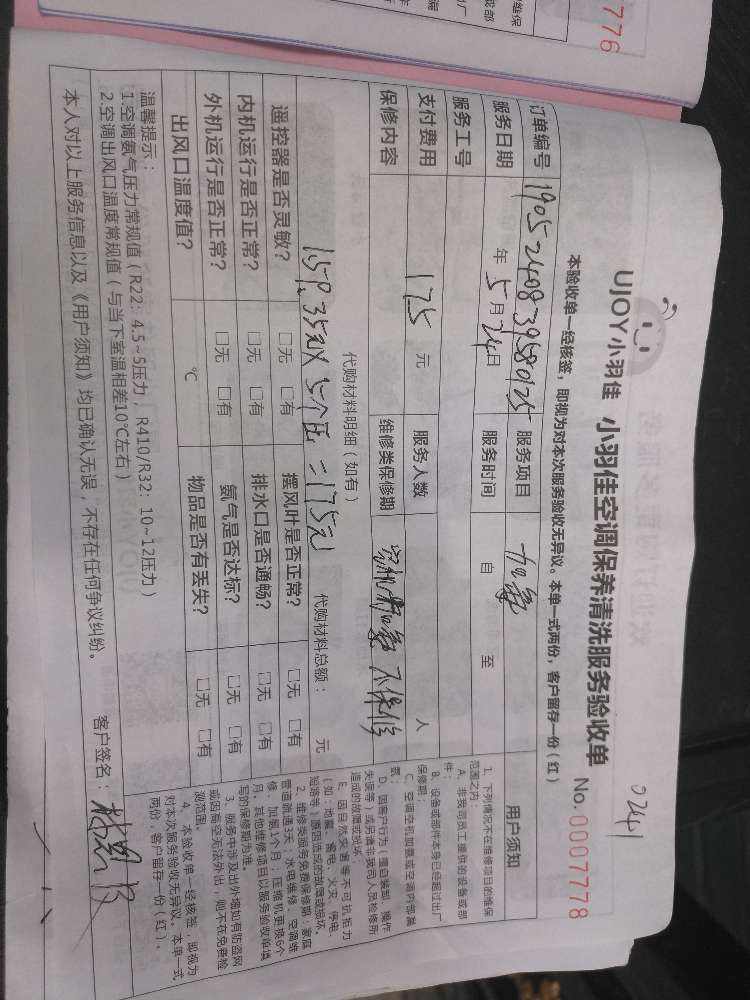 0241
UJOY小羽佳 小羽佳空调保养清洗服务验收单
No. 0007778
本验收单一经核签，即视为对本次服务验收无异议。本单一式两份，客户留存一份（红）
订单编号 服务项目 加氟
服务日期 年 5月24日 服务时间 自 至
服务工号
支付费用 175 元 服务人数 人
保修内容 维修类保修期 加氟不保修
代购材料明细（如有） 代购材料总额： 元
1.5P。35元X5个压=175元
遥控器是否灵敏？ □无 □有 摆风叶是否正常？ □无 □有
内机运行是否正常？ □无 □有 排水口是否通畅？ □无 □有
外机运行是否正常？ □无 □有 氨气是否达标？ □无 □有
出风口温度值？ ℃ 物品是否有丢失？ □无 □有
温馨提示：
1.空调氨气压力常规值（R22: 4.5~5压力，R410/R32: 10~12压力）
2.空调出风口温度常规值（与当下室温相差10℃左右）
本人对以上服务信息以及《用户须知》均已确认无误，不存在任何争议纠纷。
客户签名：
用户须知
1、下列情况不在维修项目的维保
范围之内：
A、非我司员工提供的设备或部
件；
B、设备或部件本身已经超过出厂
保修期；
C、空调空机加氨或空调内部漏
氨；
D、因客户行为（擅自装卸、操作
失误等）或另请非我司人员检修所
造成的故障或损坏；
E、因自然灾害等不可抗拒力
（如：地震、雷电、火灾、停电、
短路等）原因造成的故障或损坏。
2、维修类服务免费保修期：家庭
管道疏通3天；水电维修、空调维
修、加氨1个月；压缩机更换6个
月，其他维修项目以服务验收单填
写的保修期为准。
3、服务中涉及出外墙如有防盗网
或因高空无法外出，则不在免费检
测范围。
4、本验收单一经核签，即视为
对本次服务验收无异议。本单一式
两份，客户留存一份（红）。
776